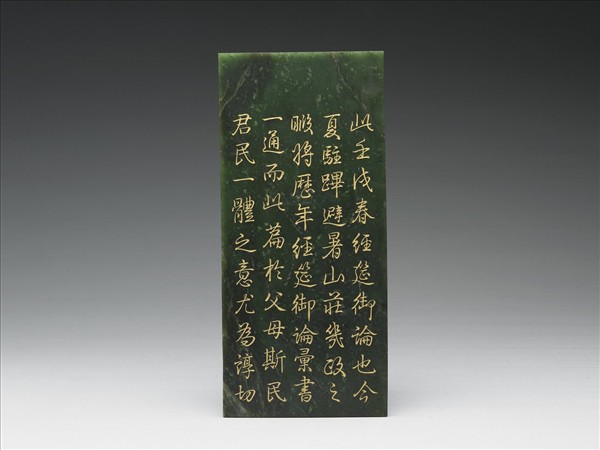 此壬戌春經筵御論也今
夏駐蹕避暑山莊幾政之
暇將歷年經筵御論彙書
一通而此篇於父母斯民
君民一體之意尤為諄切